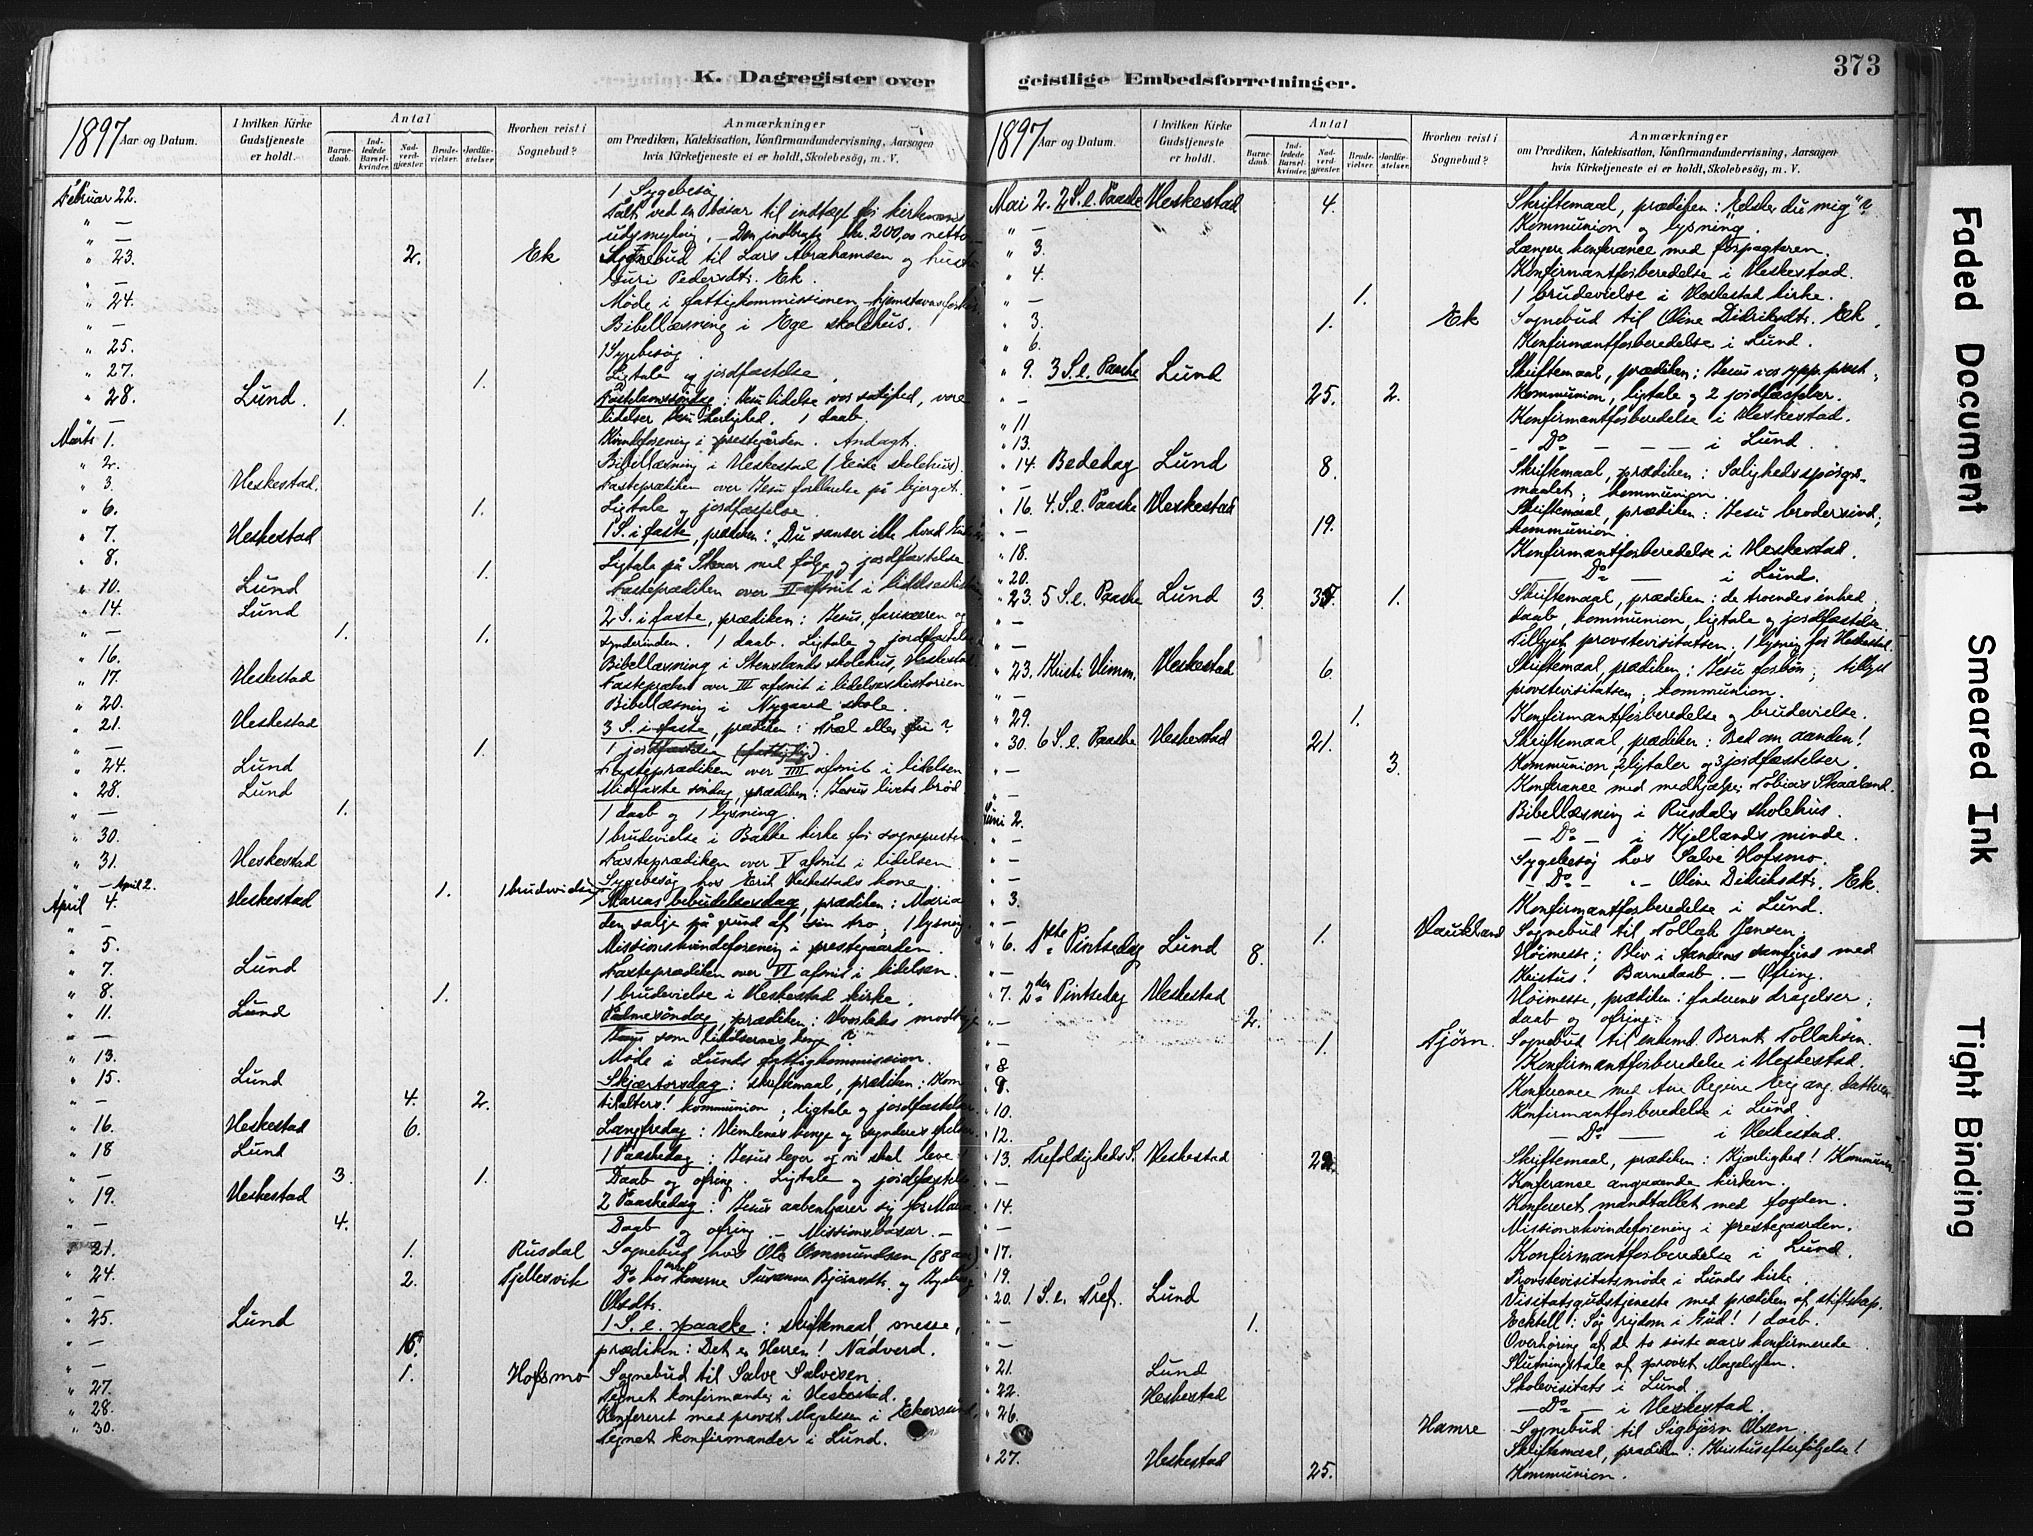 K. Dagregister over
1897 Aar og Datum.
I hvilken Kirke Gudstjeneste er holdt.
Antal
Barnedaab.
Indledede Barselkvinder.
Nadverdgjester.
Brudevielser.
Jordfæstelser
Hvorhen reist i Sognebud?
Anmærkninger
om Prædiken, Katekisation, Konfirmandundervisning, Aarsagen
hvis Kirketjeneste ei er holdt, Skolebesög, m. V.
Februar 22. 1 Sygebesög
" — Talt ved en basar til indtægt for kirkens
" — udsmykning. – Den indbragte kr. 200,00 netto.
" 23. 2. Ek Sognebud til Lars Abrahamsen og hustru
Guri Pedersdtr. Ek.
" 24. Møde i fattigkommissionen
" — Bibellæsning i Ege skolehus.
" 25. 1 Sygebesög.
" 27. 1. Ligtale og jordfæstelse.
" 28. Lund. Fastelavnssöndag: Jesu lidelse vor salighed, vore
" — 1. lidelser Jesu herlighed. 1 daab.
Marts 1. Kvindeforening i prestegården. Andagt.
" 2. Bibellæsning i Heskestad (Eide skolehus).
" 3. Heskestad. Fasteprædiken over Jesu forklarelse på bjerget.
" 6. 1. Ligtale og jordfæstelse.
" 7. Heskestad 1 S. i faste, prædiken: "Du sanser ikke hvad
" 8. 1. Ligtale på Skaar med følge og jordfæstelse
" 10. Lund Fasteprædiken over II afsnit i lidelseshistorien
" 14. Lund 2 S. i faste, prædiken: Jesus, farisæeren og
" — 1. 1. synderinden. 1 daab. Ligtale og jordfæstelse
" 16. Bibellæsning i Stenslands skolehus, Heskestad.
" 17. Heskestad Fastepræken over III afsnit i lidelseshistorien
" 20. Bibellæsning i Nygaard skole.
" 21. Heskestad 3 S. i faste, prædiken: Træl eller fri?
" — 1. 1 jordfæstelse (fattiglig).
" 24. Lund Fasteprædiken over IIII afsnit i lidelsen
" 28. Lund Midfaste söndag, prædiken: Jesus livets bröd
" — 1. 1 daab og 1 lysning.
" 30. 1 brudevielse i Bakke kirke for sognepresten
" 31. Heskestad Fasteprædiken over V afsnit i lidelsen
" — April 2. 1. 1 brudevielse Sygebesög hos Eril Heskestads kone
April 4. Heskestad Marias bebudelsesdag, prædiken: Maria
" — den salige på grund af sin tro, 1 lysning
" 5. Missionskvindeforening i prestegaarden.
" 7. Lund Fasteprædiken over VI afsnit i lidelsen.
" 8. 1. 1 brudevielse i Heskestad kirke.
" 11. Lund Palmesöndag, prædiken: Hvorledes modtage
" — Jesus som lidelsernes konge?
" 13. Møde i Lunds fattigkommission.
" 15. Lund Skjærtorsdag: skriftemaal, prædiken: Kom
" — 4. 2. til alters! kommunion, ligtale og jordfæstelser
" 16. Heskestad 6. Langfredag: Himlenes konge og synderes
" 18 Lund 1 Paaskedag: Jesus lever og vi skal leve.
" — 3. 1. Daab og ofring. Ligtale og jordfæstelse
" 19. Heskestad 2 Paaskedag: Jesus aabenbarer sig for Maria
" — 4. Daab og ofring – Missionsbasar. –
" 21. 1. Rusdal Sognebud hos Ole Ommundsen (88 aar)
" 24. 2. Fjellesvik Do hos Susanna Björnsdtr. og
" — Olsdtr.
" 25. Lund 1 S. e. paaske: skriftemaal, messe,
" — prædiken: Det er Herren! Nadverd.
" — 1. Hofsmo Sognebud til Salve Salvesen
" 27. Tegnet konfirmander i Heskestad.
" 28. Konfereret med provst Magelssen i Ekersund.
" 30. Tegnet konfirmander i Lund.
geistlige Embedsforretninger.
373
1897 Aar og Datum.
I hvilken Kirke Gudstjeneste er holdt.
Antal
Barnedaab.
Indledede Barselkvinder.
Nadverdgjester.
Brudevielser.
Jordfæstelser.
Hvorhen reist i Sognebud?
Anmærkninger
om Prædiken, Katekisation, Konfirmandundervisning, Aarsagen
hvis Kirketjeneste ei er holdt, Skolebesög, m. V.
Mai 2. 2 S. e. Paaske Heskestad 4. Skriftemaal, prædiken: "Elsker du mig"?
" — Kommunion og lysning.
" 3. Længere konferance med forpagteren.
" 4. Konfirmantforberedelse i Heskestad.
" — 1. 1 brudevielse i Heskestad kirke.
" 3. 1. Ek Sognebud til Oline Didriksdtr. Ek.
" 6. Konfirmantforberedelse i Lund.
" 9. 3 S. e. Paaske Lund Skriftemaal, prædiken: Jesu vor ypp. prest,
" — 25. 2. Kommunion, ligtale og 2 jordfæstelser.
" 11 Konfirmantforberedelse i Heskestad.
" 13. – Do – – – i Lund.
" 14. Bededag Lund 8. Skriftemaal, prædiken: Salighedsspörgs-
" — maalet; kommunion.
" 16. 4. S. e. Paaske Heskestad Skriftemaal, prædiken: Jesu brodersind;
" — 19. kommunion.
" 18. Konfirmantforberedelse i Heskestad.
" 20. — Do — i Lund.
" 23. 5 S. e. Paaske Lund 3. 1. Skriftemaal, prædiken: de troendes enhed,
" — daab, kommunion, ligtale og jordfæstelse.
" — Tillyst provstevisitatsen; 1 lysning for Heskestad.
" 23. Kristi Himm. Heskestad 6. Skriftemaal, prædiken: Jesu forbön; tillyst
" — provstevisitatsen; kommunion.
" 29. 1. Konfirmantforberedelse og brudevielse.
" 30. 6 S. e. Paaske Heskestad 21. Skriftemaal, prædiken: Bed om aanden!
" — 3. Kommunion, 2 ligtaler og 3 jordfæstelser.
" — Konferance med medhjælper Tobias Skaaland.
Juni 2. Bibellæsning i Rusdals skolehus.
" — – Do – i Kjellands minde.
" — Sygebesög hos Salve Hofsmo.
" — – Do – " – Oline Didriksdtr. Ek.
" 3. Konfirmantforberedelse i Lund.
" — 1. Haukland Sognebud til Tollak Jensen.
" 6. 1ste Pintsedag Lund 8. Höimesse: Bliv i Aandens samfund med
" — Kristus! Barnedaab. – Ofring.
" 7. 2den Pintsedag Heskestad Höimesse, prædiken: faderens dragelser;
" — 2. daab og ofring.
" — 1. Tjörn. Sognebud til enkemd. Bernt Tollaksen.
" 8 Konfirmantforberedelse i Heskestad.
" 9. Konference med Ane Regine Eeg ang. datteren.
" 10. Konfirmantforberedelse i Lund.
" 12. – Do – i Heskestad.
" 13. Trefoldigheds S. Heskestad Skriftemaal, prædiken: Kjærlighed! Kommunion
" — Konferanse angaaende kirken.
" 14. Konfereret mandtallet med fogden.
" — Missionskvindeforening i prestegaarden.
" 17. Konfirmantforberedelse i Lund.
" 19. Provstevisitatsmøde i Lunds kirke.
" 20. 1 S. e. Tref. Lund Visitatsgudstjeneste med prædiken af stiftskap.
" — 1. Ecktell: Sög rigdom i Gud! 1 daab.
" — Overhöring af de to siste aars konfirmerede
Slutningstale af provst Magelssen.
" 21. Lund Skolevisitats i Lund
" 22. Heskestad – Do – i Heskestad.
" 26. Hamre Sognebud til Sigbjörn Olsen.
" 27. Heskestad 25. Skriftemaal, prædiken: Kristusefterfølgelse!
Kommunion.
Faded Document
Smeared Ink
Tight Binding